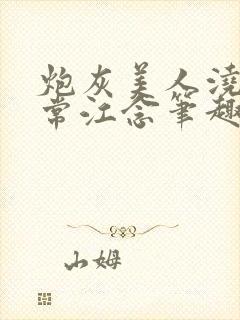 炮灰美人浇
常江念笔趣
山姆